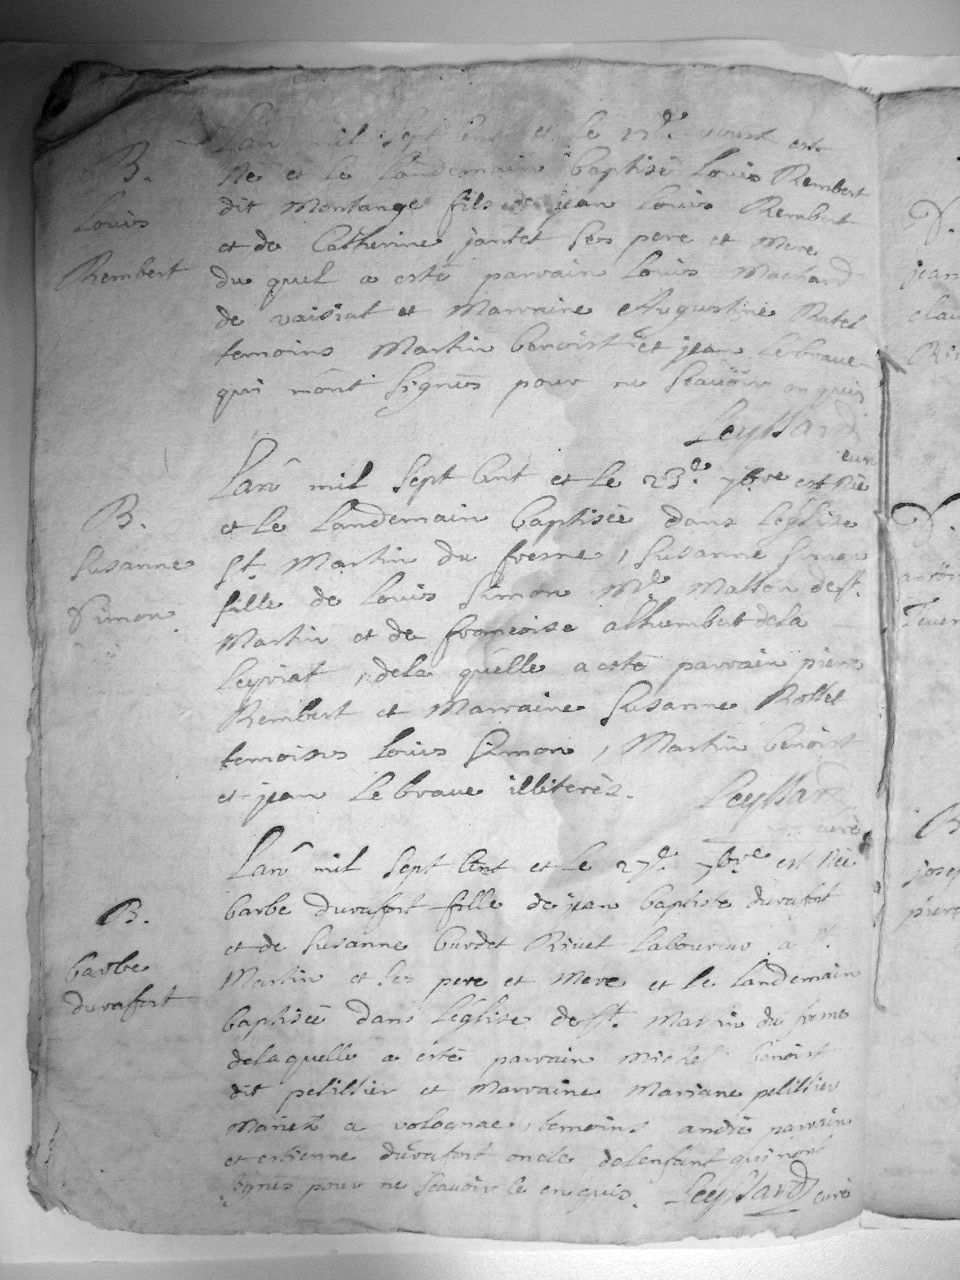 B.
Louis
Rembert
Lan mil sept cent et le 17e aoust est
Né et le Landemain baptisé Louis Rembert
dit Montange fils de jean Louis Rembert
et de Catherine jantet ses pere et Mere
du quel a esté parrain Louis Machard
de vaisiat et Marraine Augustine Ratel
temoins Martin benoist et jean Lebraue
qui n'ont signés pour ne Scauoir enquis
Leyssard
curé
B.
Susanne
Simon
Lan mil sept Cent et Le 23e. 7bre est née
et le Landemain baptisée dans Leglise
St. Martin du fresne, Susanne Simon
fille de Louis Simon Me Masson de st.
Martin et de francoise alhumbert de la
Leyriat, dela quelle a esté parrain pierre
Rembert et Marraine Susanne Rossel
temoises Louis Simon, Martin benoist
et jean Lebraue illiterés.
Leyssard
curé
B.
barbe
durafort
Lan mil sept Cent et Le 27e. 7bre est née
barbe durafort fille de jean baptiste durafort
et de Susanne burdet Riuet Laboureur a st.
Martin et ses pere et Mere et le Landemain
baptisée dans Leglise de st. Martin du frene
dela quelle a esté parrain Michel benoist
dit pelissier et Marraine Mariane pelissier
a volognae, temoins andré parrain
et estienne durafort oncle de lenfant qui n'ont
signes pour ne Scauoir le enquis. Leyssard curé
D.
jean
clau
D.
B
josep
pierre